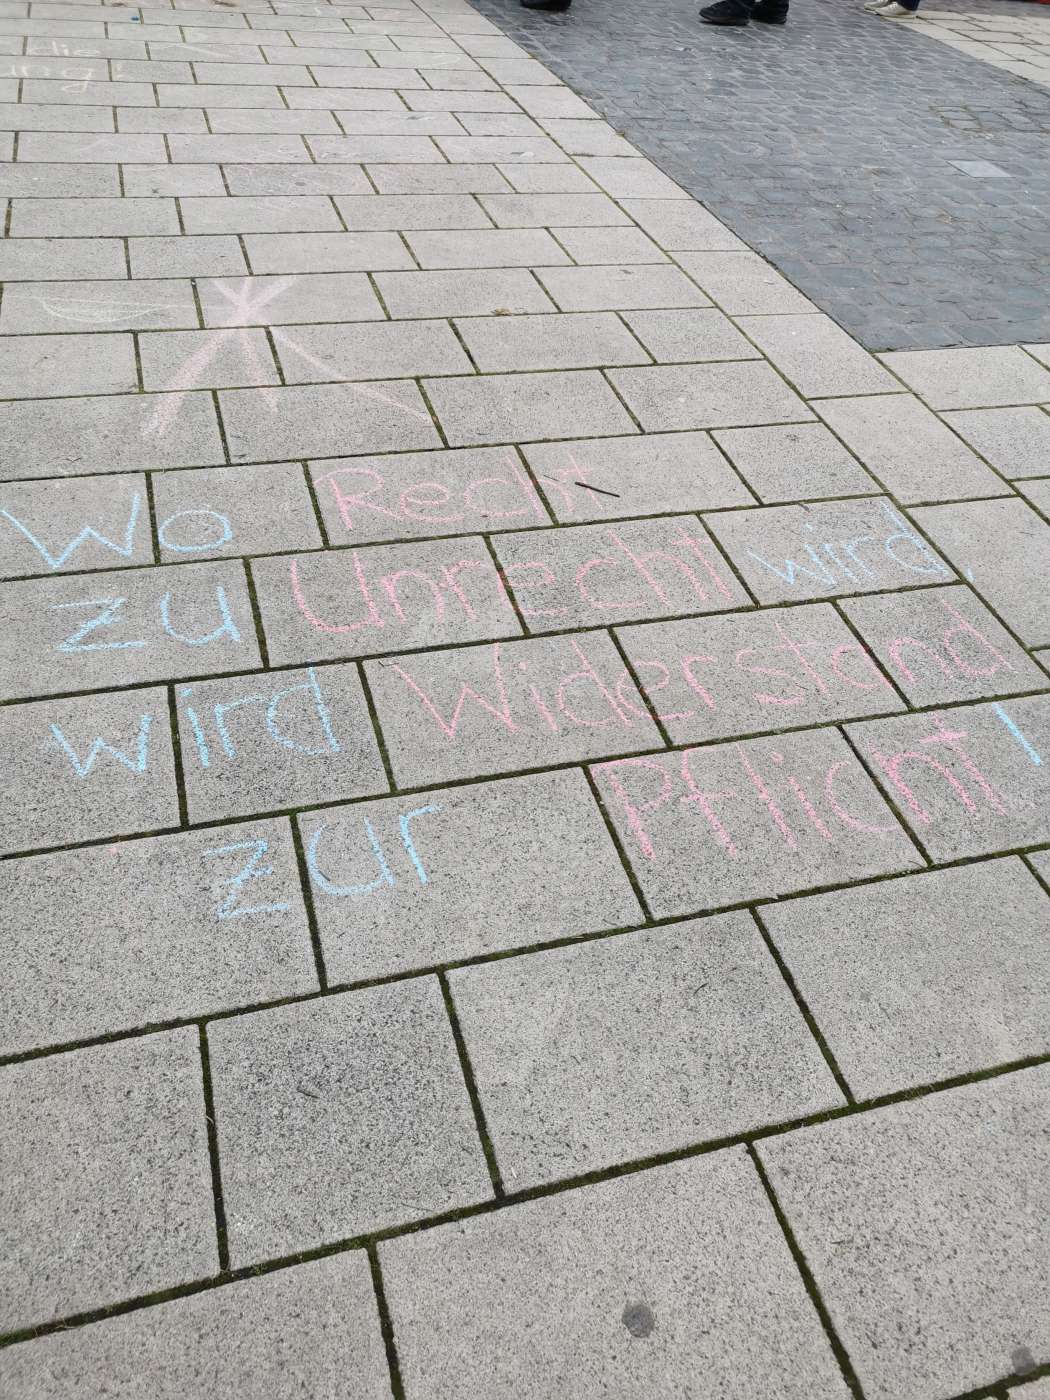 die
ung!
Wo Recht
zu Unrecht wird,
wird Widerstand
zur Pflicht!